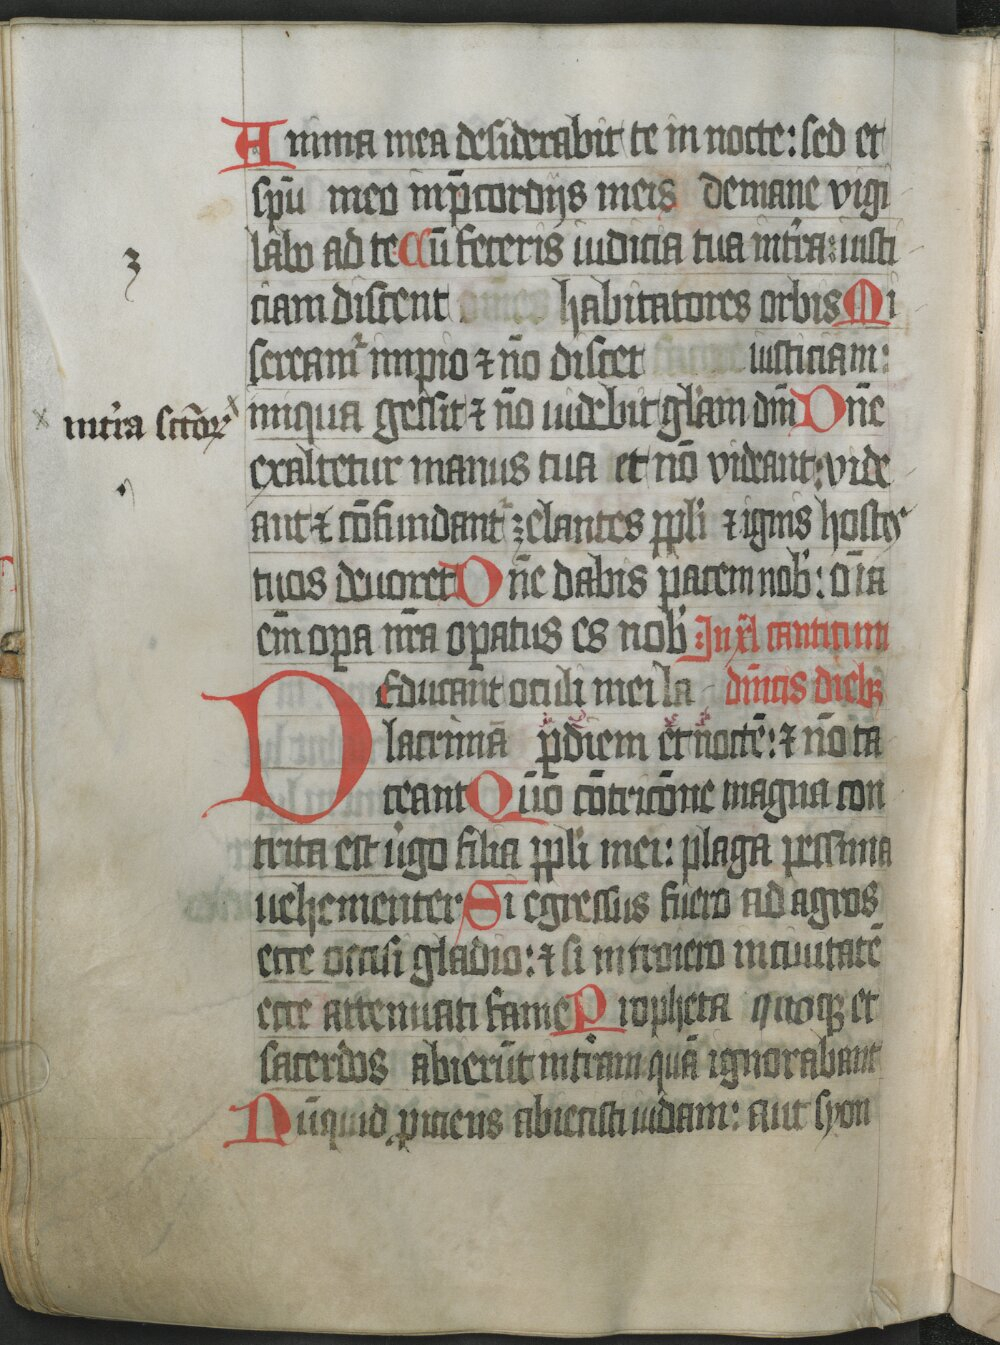 Anima mea desiderabit te in nocte: sed et
spū meo in p̄cordijs meis demane vigi
labo ad te Cū feceris iudicia tua in tr̄a: iusti
ciam discent habitatores orbis Mi
sereamr impio ⁊ nō discet iusticiam:
in tr̄a sctōꝝ
iniqua gessit ⁊ nō videbit gl̄am dn̄i Dn̄e
exaltetur manus tua et nō videant: vide
ant ⁊ cōfundantr zelantes pp̄li ⁊ ignis hostes
tuos deuoret Dn̄e dabis pacem nob̄: om̄ia
em̄ opa nr̄a opatus es nob̄ In xl canticum
Educant oculi mei la dn̄icis dieb
D lacrimā p diem et noctē: ⁊ nō ta
ceant Qūo cōtricōne magna con
trita est ūgo filia pp̄li mei: plaga pessima
vehementer Si egressus fuero ad agros
ecce occisi gladio: ⁊ si introiero in ciuitatē
ecce attenuati fame Propheta quoqꝫ et
sacerdos abierūt in tr̄am quā ignorabant
Nūquid ꝓiciens abiecisti iudam: aut syon